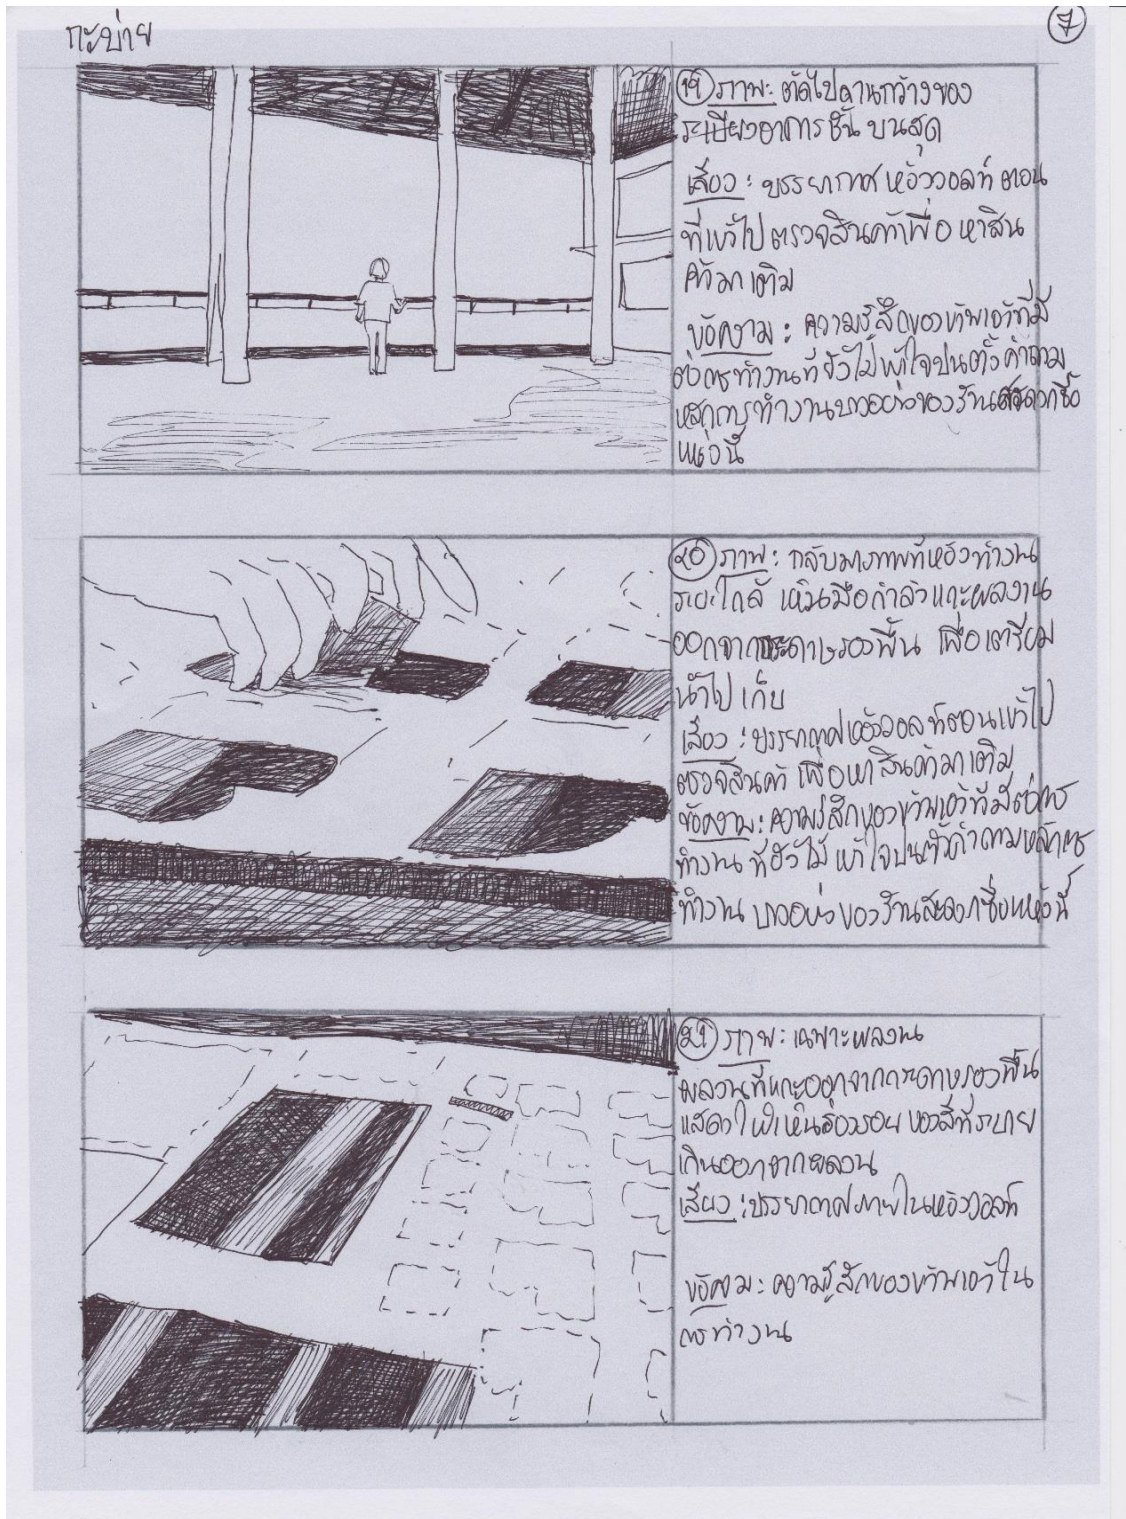 กะบ่าย
๗
๑๙ ภาพ: ตัดไปด้านกว้างของ
ระเบียงอาคารชั้นบนสุด
เสียง: บรรยากาศห้องวอลท์ ตอน
ที่เข้าไปตรวจสินค้าเพื่อ หาสิน
ค้ามาเติม
ข้อความ: ความรู้สึกของข้าพเจ้าที่มี
ต่อการทำงานที่ยังไม่เข้าใจปนตั้งคำถาม
หลักการทำงานบางอย่างของร้านสะดวกซื้อ
แห่งนี้
๒๐ ภาพ: กลับมาภาพที่ห้องทำงาน
ระยะใกล้ เห็นมือกำลังแกะผลงาน
ออกจากกระดาษรองพื้น เพื่อเตรียม
นำไป เก็บ
เสียง: บรรยากาศห้องวอลท์ตอนเข้าไป
ตรวจสินค้า เพื่อหาสินค้ามาเติม
ข้อความ: ความรู้สึกของข้าพเจ้าที่มีต่อการ
ทำงาน ที่ยังไม่ เข้าใจปนตั้งคำถามหลักการ
ทำงาน บางอย่างของร้านสะดวกซื้อแห่งนี้
๒๑ ภาพ: เฉพาะผลงาน
ผลงานที่แกะออกจากกระดาษรองพื้น
แสดงให้เห็นร่องรอย ของสีที่ระบาย
เกินออกจากผลงาน
เสียง: บรรยากาศภายในห้องวอลท์
ข้อความ: ความรู้สึกของข้าพเจ้าใน
การทำงาน